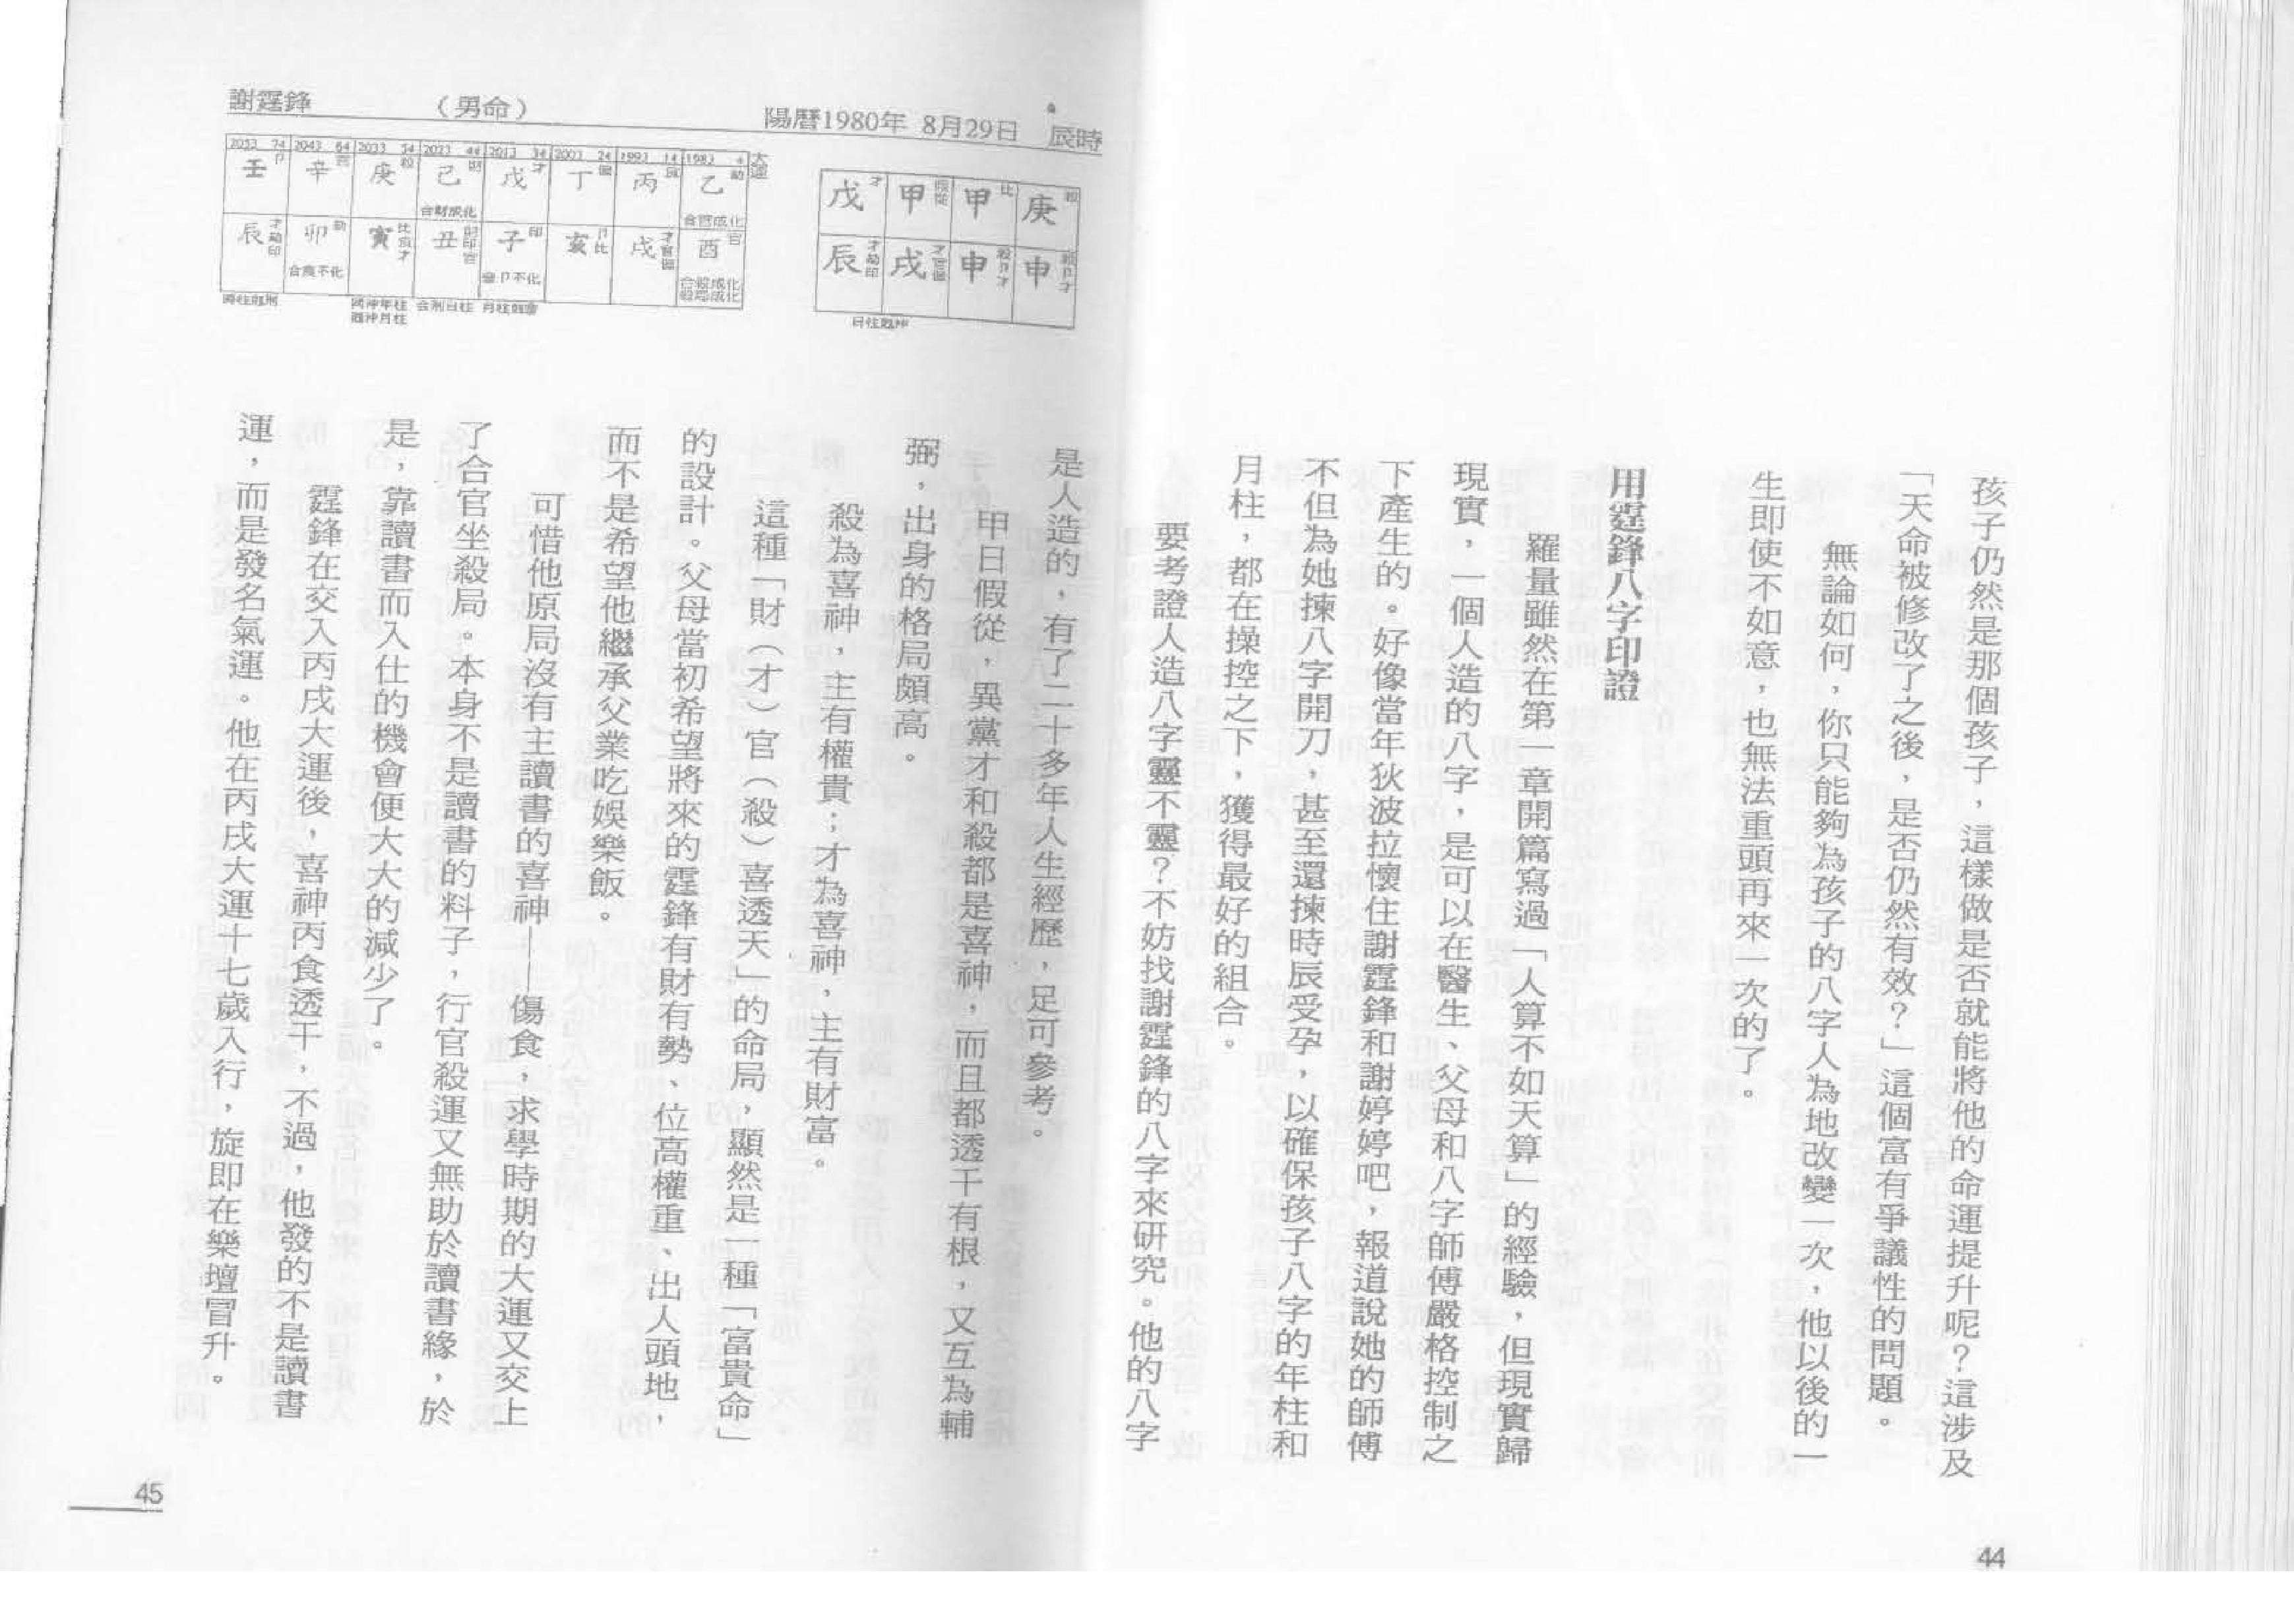 孩子仍然是那個孩子，這樣做是否就能將他的命運提升呢？這涉及
「天命被修改了之後，是否仍然有效？」這個富有爭議性的問題。
無論如何，你只能夠為孩子的八字人為地改變一次，他以後的一
生即使不如意，也無法重頭再來一次的了。
用霆鋒八字印證
羅量雖然在第一章開篇寫過「人算不如天算」的經驗，但現實歸
現實，一個人造的八字，是可以在醫生、父母和八字師傅嚴格控制之
下產生的。好像當年狄波拉懷住謝霆鋒和謝婷婷吧，報道說她的師傅
不但為她揀八字開刀，甚至還揀時辰受孕，以確保孩子八字的年柱和
月柱，都在操控之下，獲得最好的組合。
要考證人造八字靈不靈？不妨找謝霆鋒的八字來研究。他的八字
44
謝霆鋒 （男命） 陽曆1980年 8月29日 辰時
戊才 甲 甲比 庚殺
辰才劫印 戌才官傷 申殺卩才 申殺卩才
日柱尅冲
大運
2053 74 2043 64 2033 54 2023 44 2013 34 2003 24 1993 14 1983 4
壬卩 辛官 庚殺 己財 戊才 丁傷 丙食 乙劫
合財成化 合官成化
辰才劫印 卯劫 寅比食才 丑財印官 子印 亥卩比 戌才官傷 酉官
合戌不化 會卩不化 合殺成化
是人造的，有了二十多年人生經歷，足可參考。
甲日假從，異黨才和殺都是喜神，而且都透干有根，又互為輔
弼，出身的格局頗高。
殺為喜神，主有權貴；才為喜神，主有財富。
這種「財（才）官（殺）喜透天」的命局，顯然是一種「富貴命」
的設計。父母當初希望將來的霆鋒有財有勢、位高權重、出人頭地，
而不是希望他繼承父業吃娛樂飯。
可惜他原局沒有主讀書的喜神——傷食，求學時期的大運又交上
了合官坐殺局。本身不是讀書的料子，行官殺運又無助於讀書緣，於
是，靠讀書而入仕的機會便大大的減少了。
霆鋒在交入丙戌大運後，喜神丙食透干，不過，他發的不是讀書
運，而是發名氣運。他在丙戌大運十七歲入行，旋即在樂壇冒升。
45